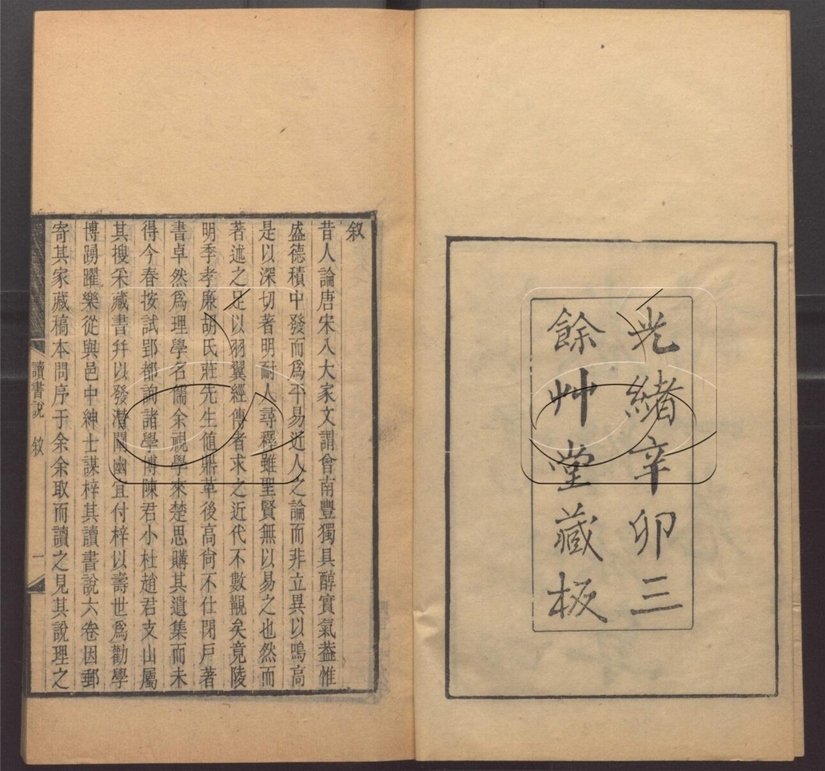 光緒辛卯三
餘艸堂藏板
敘
昔人論唐宋八大家文謂曾南豐獨具醇實氣葢惟
盛德積中發而爲平易近人之論而非立異以鳴高
是以深切著明耐人尋繹雖聖賢無以易之也然而
著述之足以羽翼經傳者求之近代不數覯矣竟陵
明季孝廉胡氏莊先生値鼎革後高尙不仕閉戶著
書卓然爲理學名儒余視學來楚思購其遺集而未
得今春按試郢都詢諸學博陳君小杜趙君支山屬
其搜采藏書幷以發潛闡幽宜付梓以壽世爲勸學
博踴躍樂從與邑中紳士謀梓其讀書說六卷因郵
寄其家藏稿本問序于余余取而讀之見其說理之
讀書說 敘
一